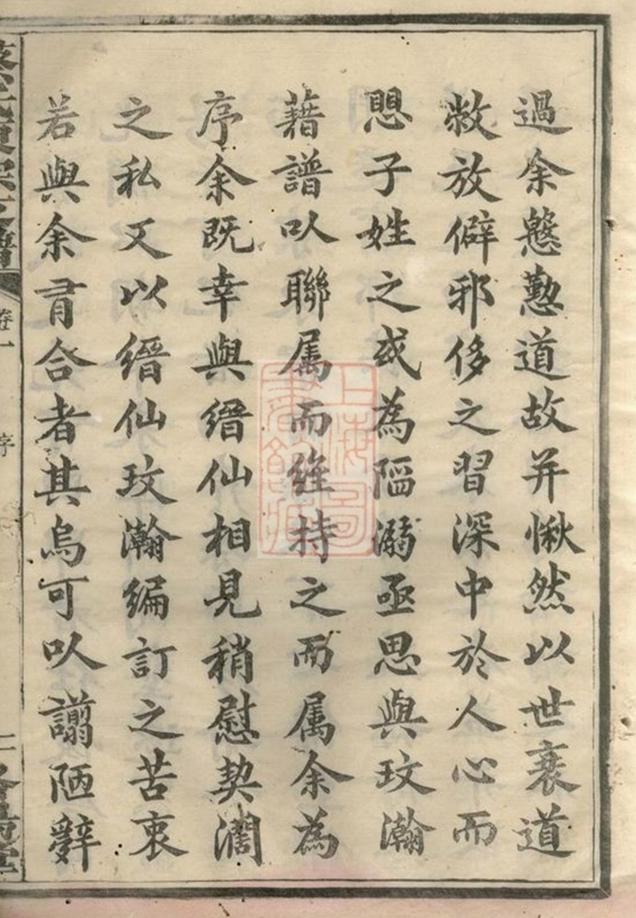 過余慇懃道故并愀然以世衰道
敝放僻邪侈之習深中於人心而
愳子姓之或為陷溺亟思與玟瀚
藉譜㕥聯属而維持之而属余為
序余既幸與縉仙相見稍慰契濶
之私又以縉仙玟瀚編訂之苦衷
若與余有合者其烏可㕥譾陋辭
卷一
序